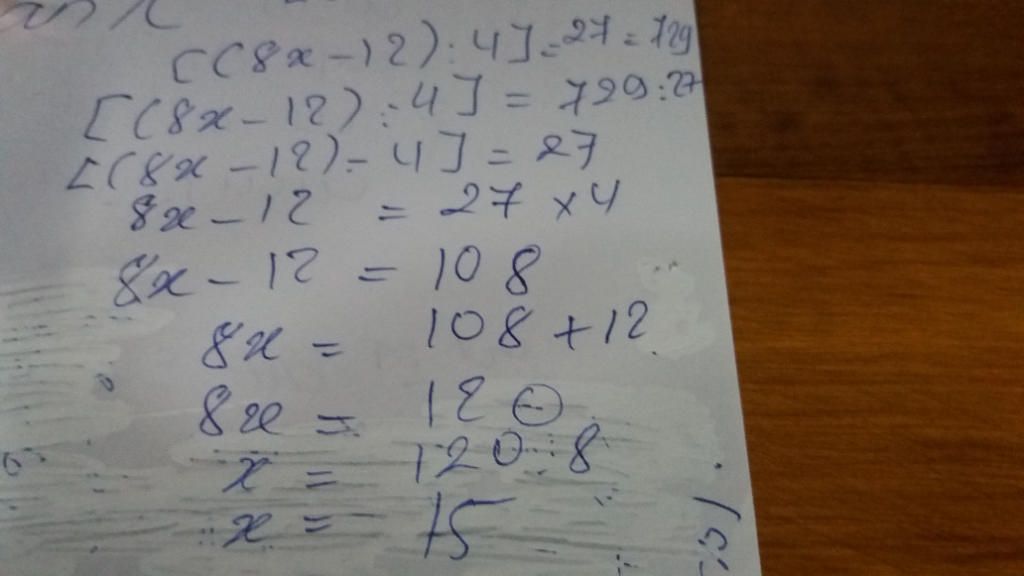 [(8x-12):4]=27=729
[(8x-12):4]=729:27
[(8x-12)-4]=27
8x-12=27×4
8x-12=108
8x=108+12
8x=120
x=120:8
x=15